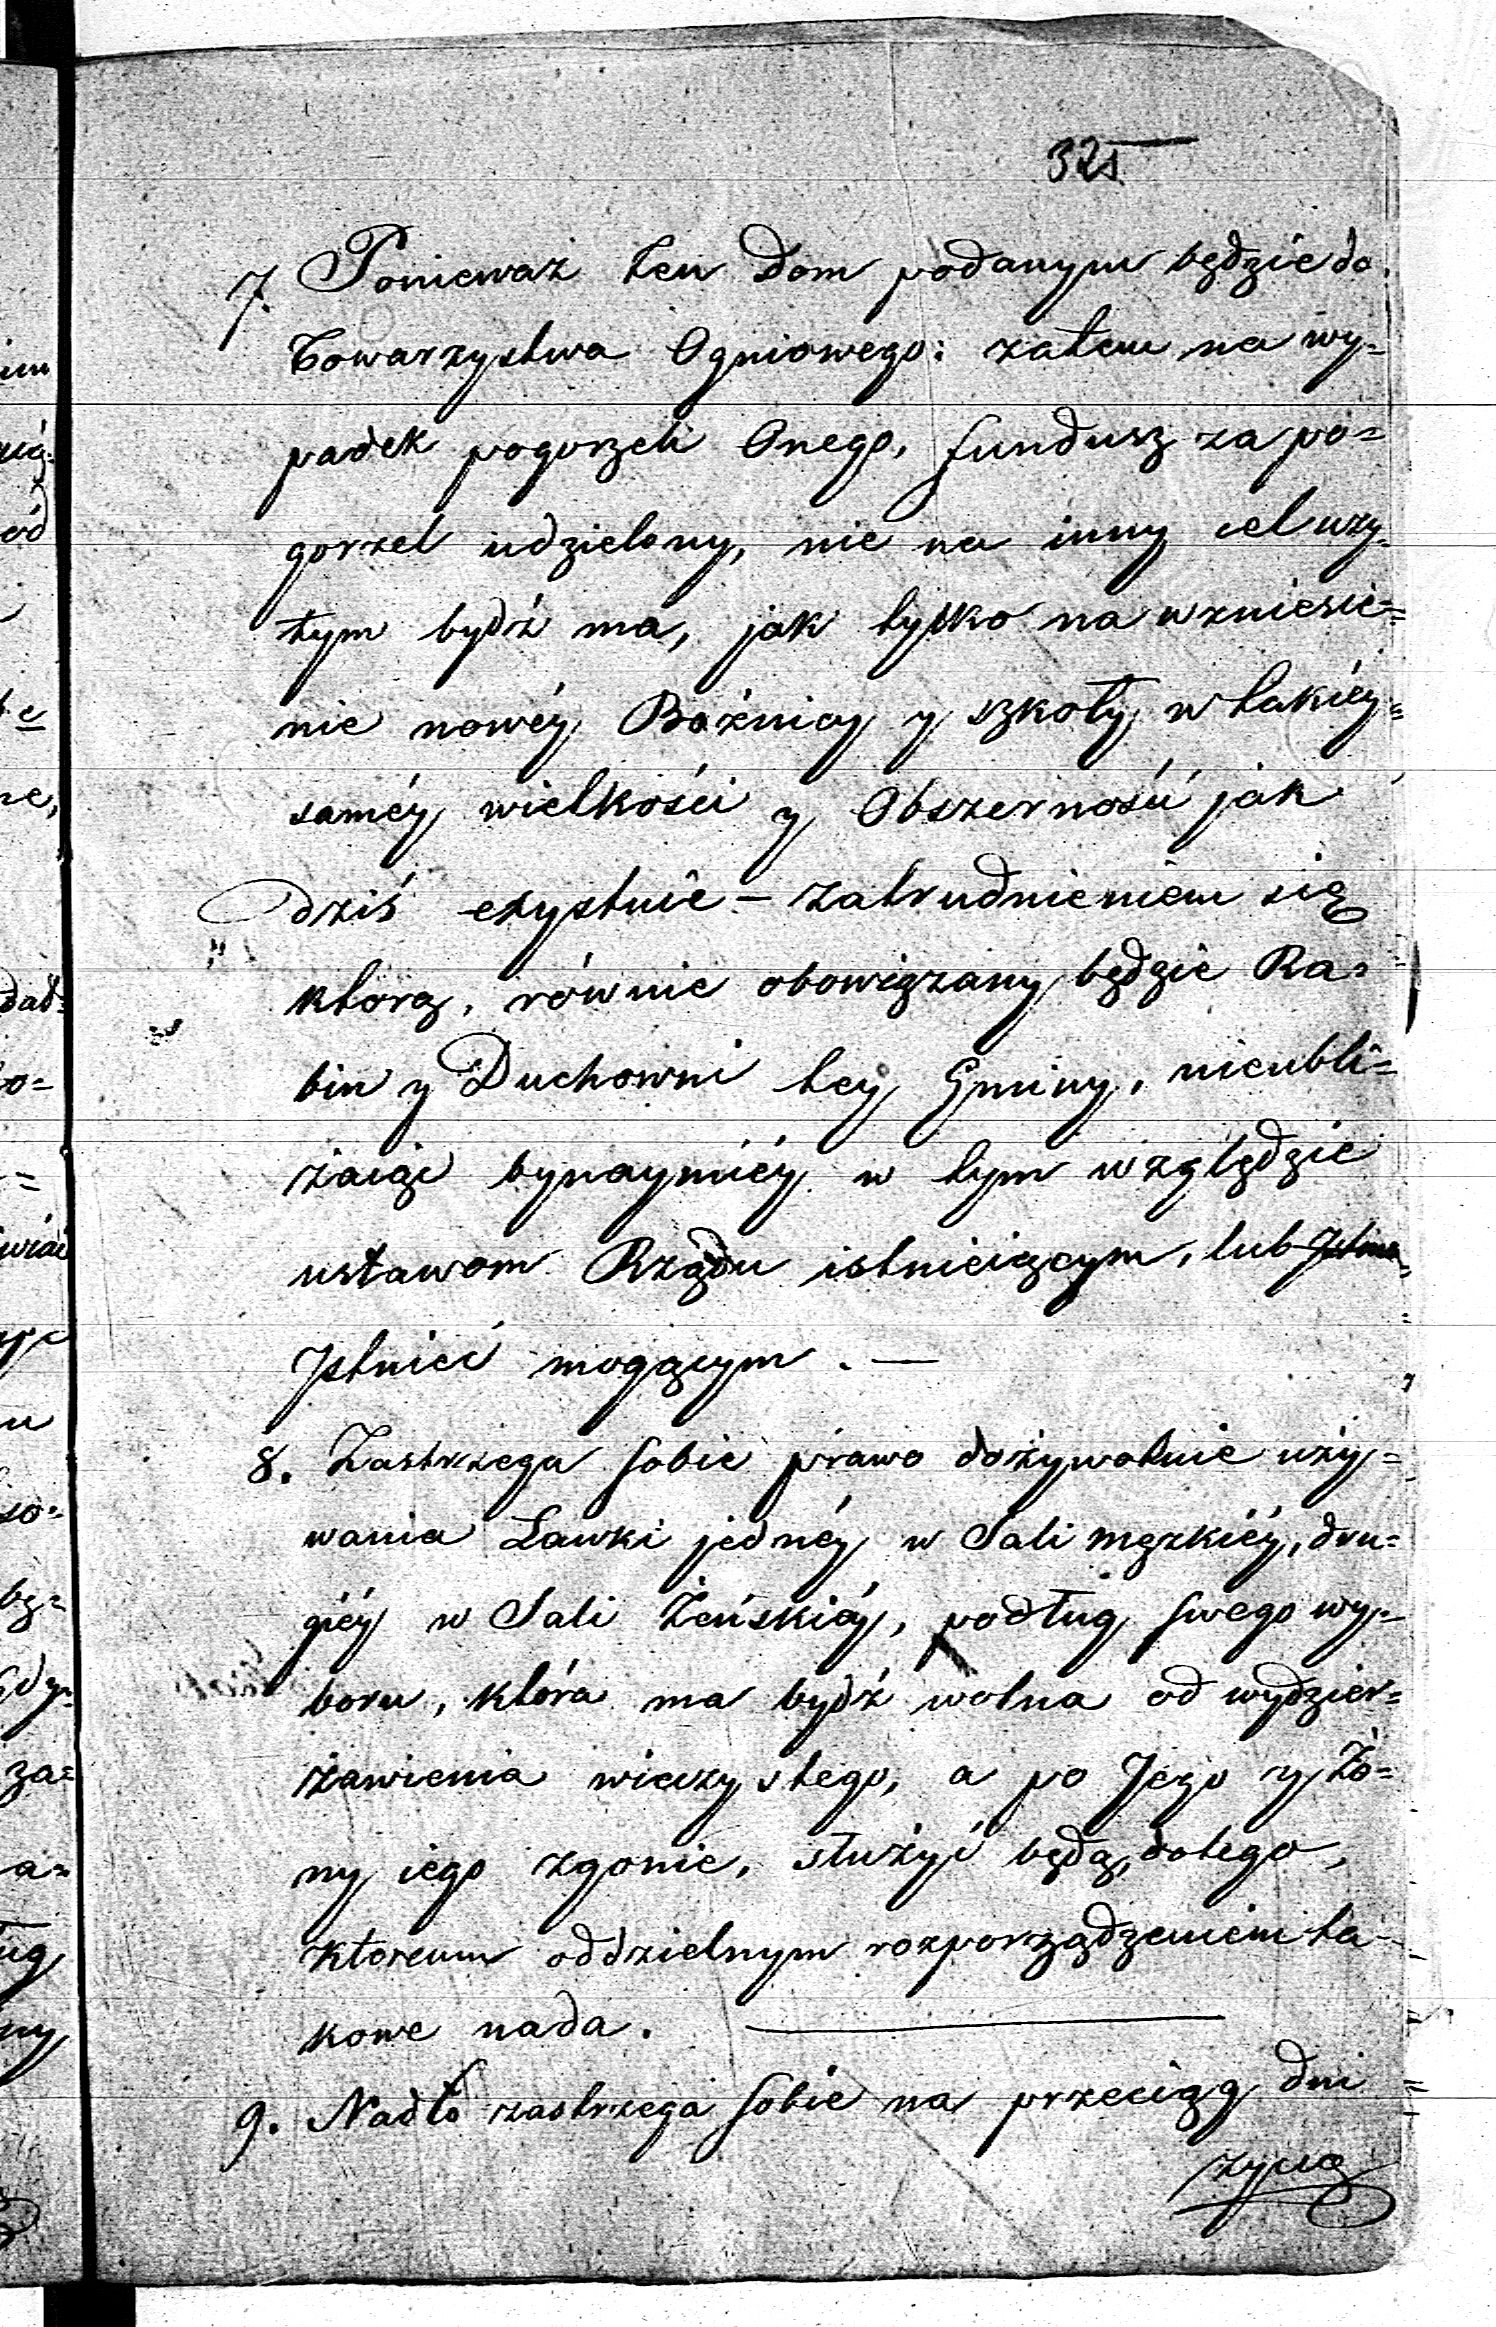 325
7. Ponieważ ten Dom podanym będzie do
Towarzystwa Ogniowego: zatem na wy-
padek pogorzeli Onego, fundusz za po=
gorzel udzielony, nie na inny cel uży-
tym bydź ma, jak tylko na wzniesie=
nie nowéy Bóżnicy y szkoły, w takiéy=
saméy wielkości y Obszerności jak
dziś exystuie – zatrudnieniem się
którą, równie obowiązany będzie Ra=
bin y Duchowni tey Gminy, nieubli=
żaiąc bynaymiéy w tym względzie
ustawom Rządu istnieiącym, lub
Jstnieć mogącym. —
8. Zastrzega sobie prawo dożywotnie uży=
wania Ławki jednéy w Sali męzkiéy, dru=
giéy w Sali Żeńskiéy, podług swego wy=
boru, która ma bydź wolna od wydzier=
żawienia wieczystego, a po Jego y Żo=
ny iego zgonie, służyć będą do tego,
ktoremu oddzielnym rozporządzeniem ta-
kowe nada.
9. Nadto zastrzega sobie na przeciąg dni
życia